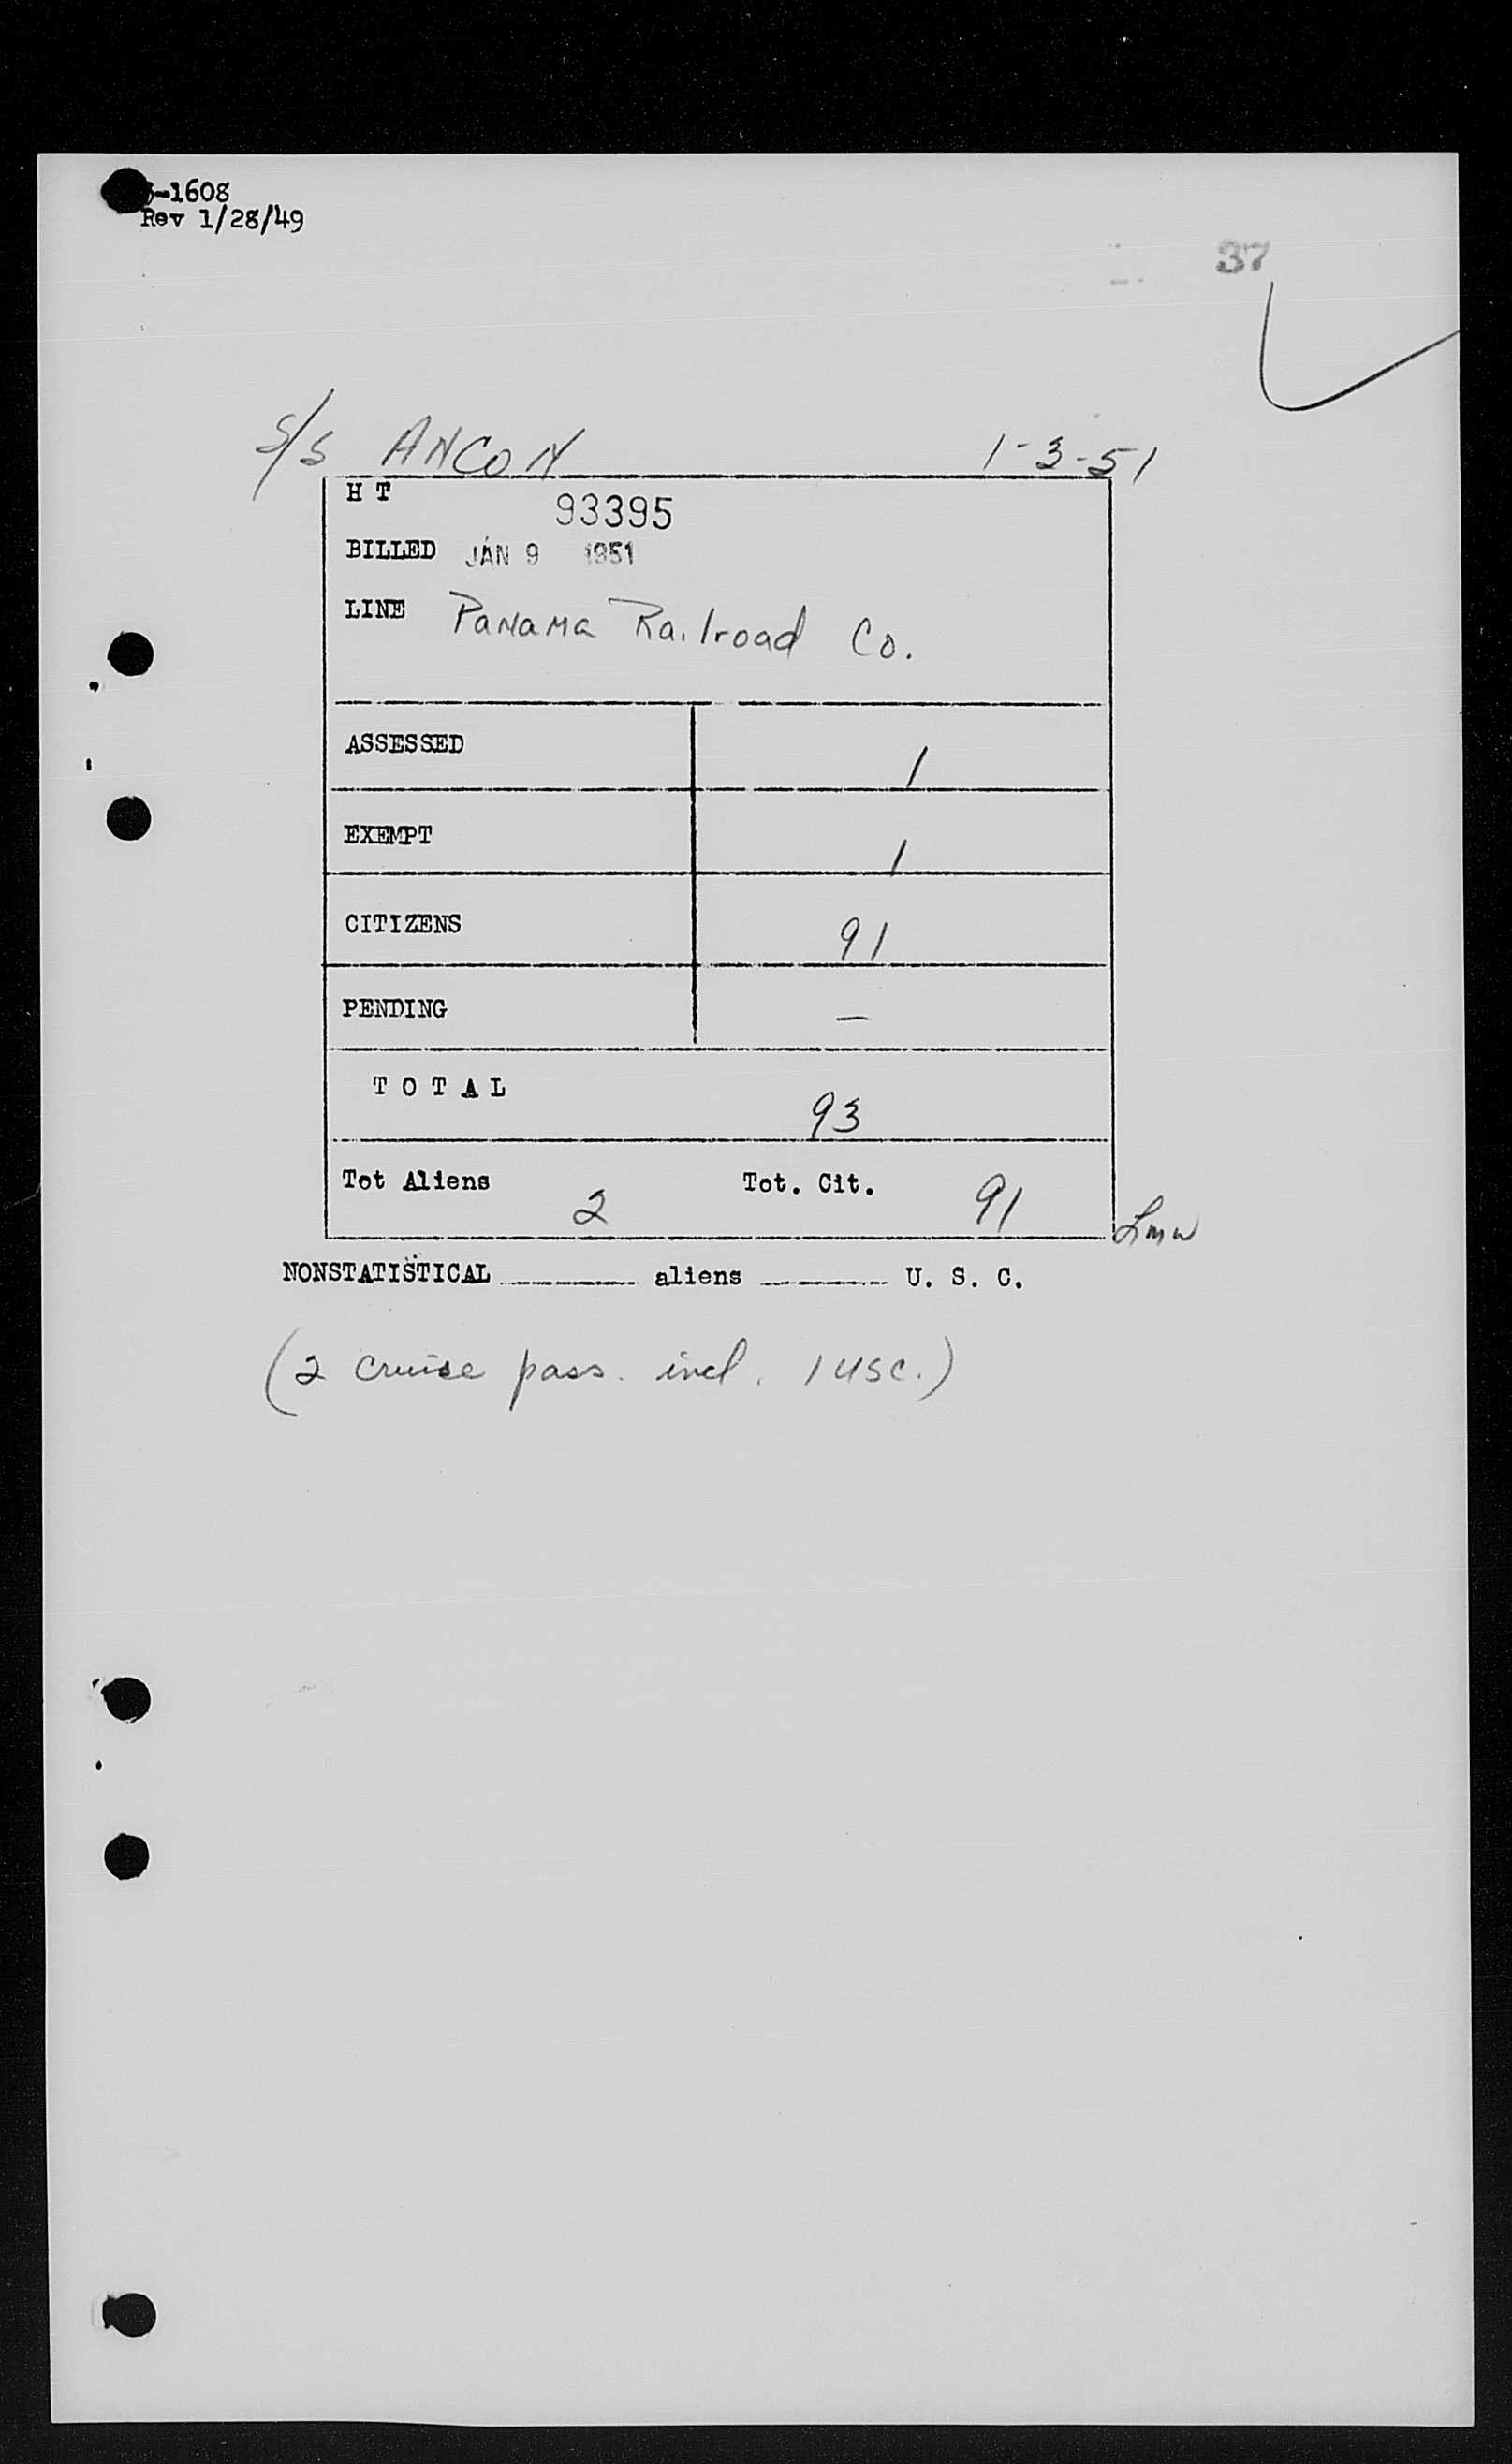 -1608
Rev 1/28/49
37
S/S ANCON 1-3-51
H T 93395
BILLED JAN 9 1951
LINE Panama Railroad Co.
ASSESSED 1
EXEMPT 1
CITIZENS 91
PENDING —
T O T A L 93
Tot Aliens 2 Tot. Cit. 91
Lmw
NONSTATISTICAL ________ aliens ________ U. S. C.
(2 cruise pass. incl. 1 USC.)